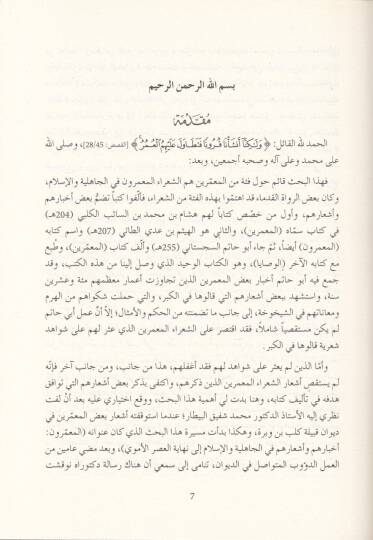 بسم الله الرحمن الرحيم
مقدمة
الحمد لله القائل: ﴿ وَلَكِنَّا أَنشَأْنَا قُرُونًا فَتَطَاوَلَ عَلَيْهِمُ الْعُمُرُ ﴾ [القصص: 28/45]، وصلى الله
على محمد وعلى آله وصحبه أجمعين، وبعد:
فهذا البحث قائم حول فئة من المعمّرين هم الشعراء المعمرون في الجاهلية والإسلام،
وكان بعض الرواة القدماء قد اهتموا بهذه الفئة من الشعراء، فألّفوا كتباً تضمُّ بعض أخبارهم
وأشعارهم، وأول من خصّص كتاباً لهم هشام بن محمد بن السائب الكلبي (204هـ)
في كتاب سمّاه (المعمرين)، والثاني هو الهيثم بن عدي الطائي (207هـ) واسم كتابه
(المعمرون) أيضاً، ثمّ جاء أبو حاتم السجستاني (255هـ) وألّف كتاب (المعمّرين)، وطُبع
مع كتابه الآخر (الوصايا)، وهو الكتاب الوحيد الذي وصل إلينا من هذه الكتب، وقد
جمع فيه أبو حاتم أخبار بعض المعمرين الذين تجاوزت أعمار معظمهم مئة وعشرين
سنة، واستشهد ببعض أشعارهم التي قالوها في الكبر، والتي حملت شكواهم من الهرم
ومعاناتهم في الشيخوخة، إلى جانب ما تضمنته من الحكم والأمثال؛ إلاّ أنّ عمل أبي حاتم
لم يكن مستقصياً شاملاً، فقد اقتصر على الشعراء المعمرين الذي عثر لهم على شواهد
شعرية قالوها في الكبر.
وأمّا الذين لم يعثر على شواهد لهم فقد أغفلهم، هذا من جانب، ومن جانب آخر فإنّه
لم يستقصِ أشعار الشعراء المعمرين الذين ذكرهم، واكتفى بذكر بعض أشعارهم التي توافق
هدفه في تأليف كتابه، وهنا بدت لي أهمية هذا البحث، ووقع اختياري عليه بعد أنْ لفت
نظري إليه الأستاذ الدكتور محمد شفيق البيطار؛ عندما استوقفته أشعار بعض المعمّرين في
ديوان قبيلة كلب بن وبرة، وهكذا بدأت مسيرة هذا البحث الذي كان عنوانه (المعمّرون:
أخبارهم وأشعارهم في الجاهلية والإسلام إلى نهاية العصر الأموي)، وبعد مضي عامين من
العمل الدؤوب المتواصل في الديوان، تنامى إلى سمعي أن هناك رسالة دكتوراه نوقشت
7